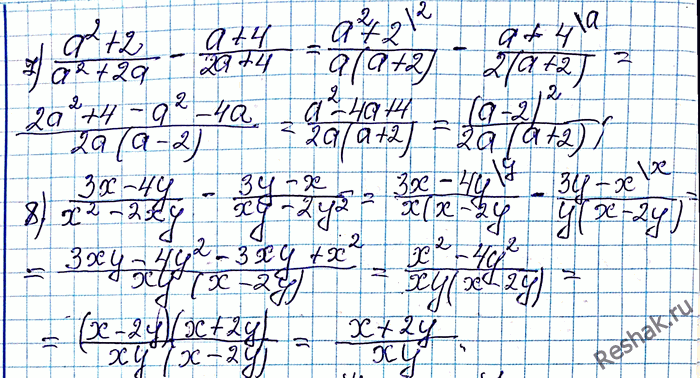 7) (a²+2)/(a²+2a) - (a+4)/(2a+4) = (a²+2\2)/(a(a+2)) - (a+4\a)/(2(a+2)) =
(2a²+4-a²-4a)/(2a(a-2)) = (a²-4a+4)/(2a(a+2)) = (a-2)²/(2a(a+2));
8) (3x-4y)/(x²-2xy) - (3y-x)/(xy-2y²) = (3x-4y\y)/(x(x-2y) - (3y-x\x)/(y(x-2y)) =
= (3xy-4y²-3xy+x²)/(xy(x-2y)) = (x²-4y²)/(xy(x-2y)) =
= ((x-2y)(x+2y))/(xy(x-2y)) = (x+2y)/(xy).
Reshak.ru